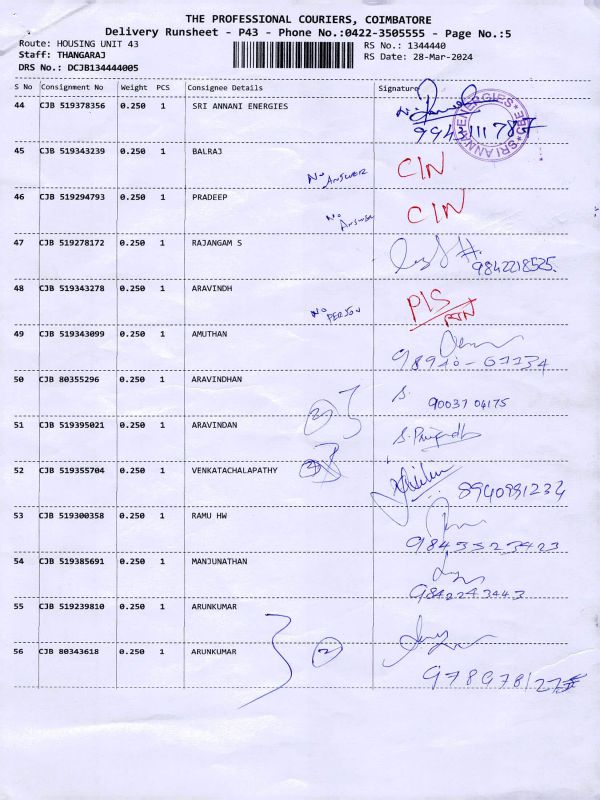 THE PROFESSIONAL COURIERS, COIMBATORE
Delivery Runsheet - P43 - Phone No.:0422-3505555 - Page No.:5
Route: HOUSING UNIT 43
RS No.: 1344440
Staff: THANGARAJ
RS Date: 28-Mar-2024
DRS No.: DCJB134444005
S No Consignment No Weight PCS Consignee Details Signature
44 CJB 519378356 0.250 1 SRI ANNANI ENERGIES
9943111787
45 CJB 519343239 0.250 1 BALRAJ
No ANSWER CIN
46 CJB 519294793 0.250 1 PRADEEP
No Answer CIN
47 CJB 519278172 0.250 1 RAJANGAM S
9842218525.
48 CJB 519343278 0.250 1 ARAVINDH
No PERSON PIS
49 CJB 519343099 0.250 1 AMUTHAN
98940-61134
50 CJB 80355296 0.250 1 ARAVINDHAN
S. 90037 04175
2
51 CJB 519395021 0.250 1 ARAVINDAN
52 CJB 519355704 0.250 1 VENKATACHALAPATHY
8940991234
53 CJB 519300358 0.250 1 RAMU HW
9843523423
54 CJB 519385691 0.250 1 MANJUNATHAN
9842243443
55 CJB 519239810 0.250 1 ARUNKUMAR
56 CJB 80343618 0.250 1 ARUNKUMAR
2